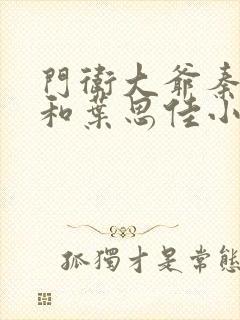 門衛大爺秦
和葉思佳小
孤獨才是常態